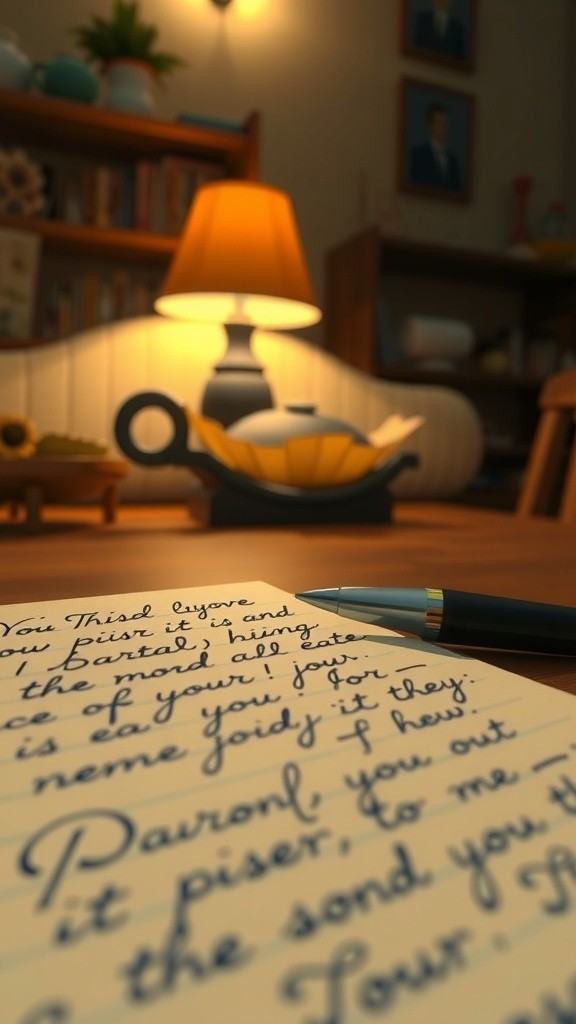 You Thisd leyove
ou piisr it is and
I bartal, hiing
the mord all eate
ce of your! jour.
is ea you! for —
neme joidy it they:
f hew.
Pavronl, you out
it piser, to me —
the sond you th
Tour. Th